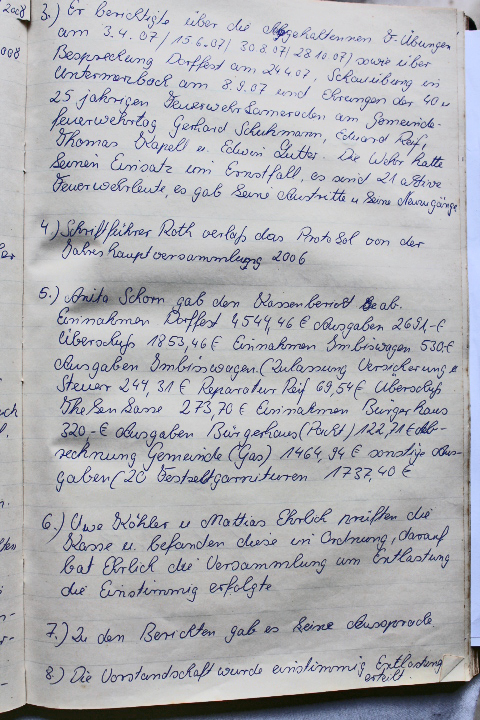 2008
008
3.) Er berichtigte über die Abgehaltennen F.-Übungen
am 3.4.07/ 15.6.07/ 30.8.07/ 28.10.07/ sowie über
Besprechung Dorffest am 24.4.07, Schauübung in
Untermerzbach am 8.9.07 und Ehrungen der 40 u
25 jährigen Feuerwehrkameraden am Gemeinde-
feuerwehrtag Gerhard Schuhmann, Eduard Reif,
Thomas Kapell u. Edwin Lutter. Die Wehr hatte
keinen Einsatz im Ernstfall, es sind 21 aktive
Feuerwehrleute, es gab keine Austritte u keine Neuzugänge
4.) Schriftführer Roth verlaß das Protokol von der
Jahreshauptversammlung 2006
5.) Anita Schorn gab den Kassenbericht ab.
Einnahmen Dorffest 4544,46 € Ausgaben 2691.-€
Überschuß 1853,46 € Einnahmen Imbisswagen 530-€
Ausgaben Imbisswagen (Zulassung Versicherung u
Steuer 244,31 € Reparatur Reif 69,54 € Überschuß
Thekenkasse 273,70 € Einnahmen Bürgerhaus
320.-€ Ausgaben Bürgerhaus (Pacht) 122,71 € Ab-
rechnung Gemeinde (Gas) 1464,94 € sonstige Aus-
gaben (20 Festzeltgarnituren 1737,40 €
6.) Uwe Köhler u Mattias Ehrlich prüften die
Kasse u. befanden diese in Ordnung, darauf
bat Ehrlich die Versammlung um Entlastung
die Einstimmig erfolgte
7.) Zu den Berichten gab es keine Aussprache.
8.) Die Vorstandschaft wurde einstimmig Entlastung
erteilt